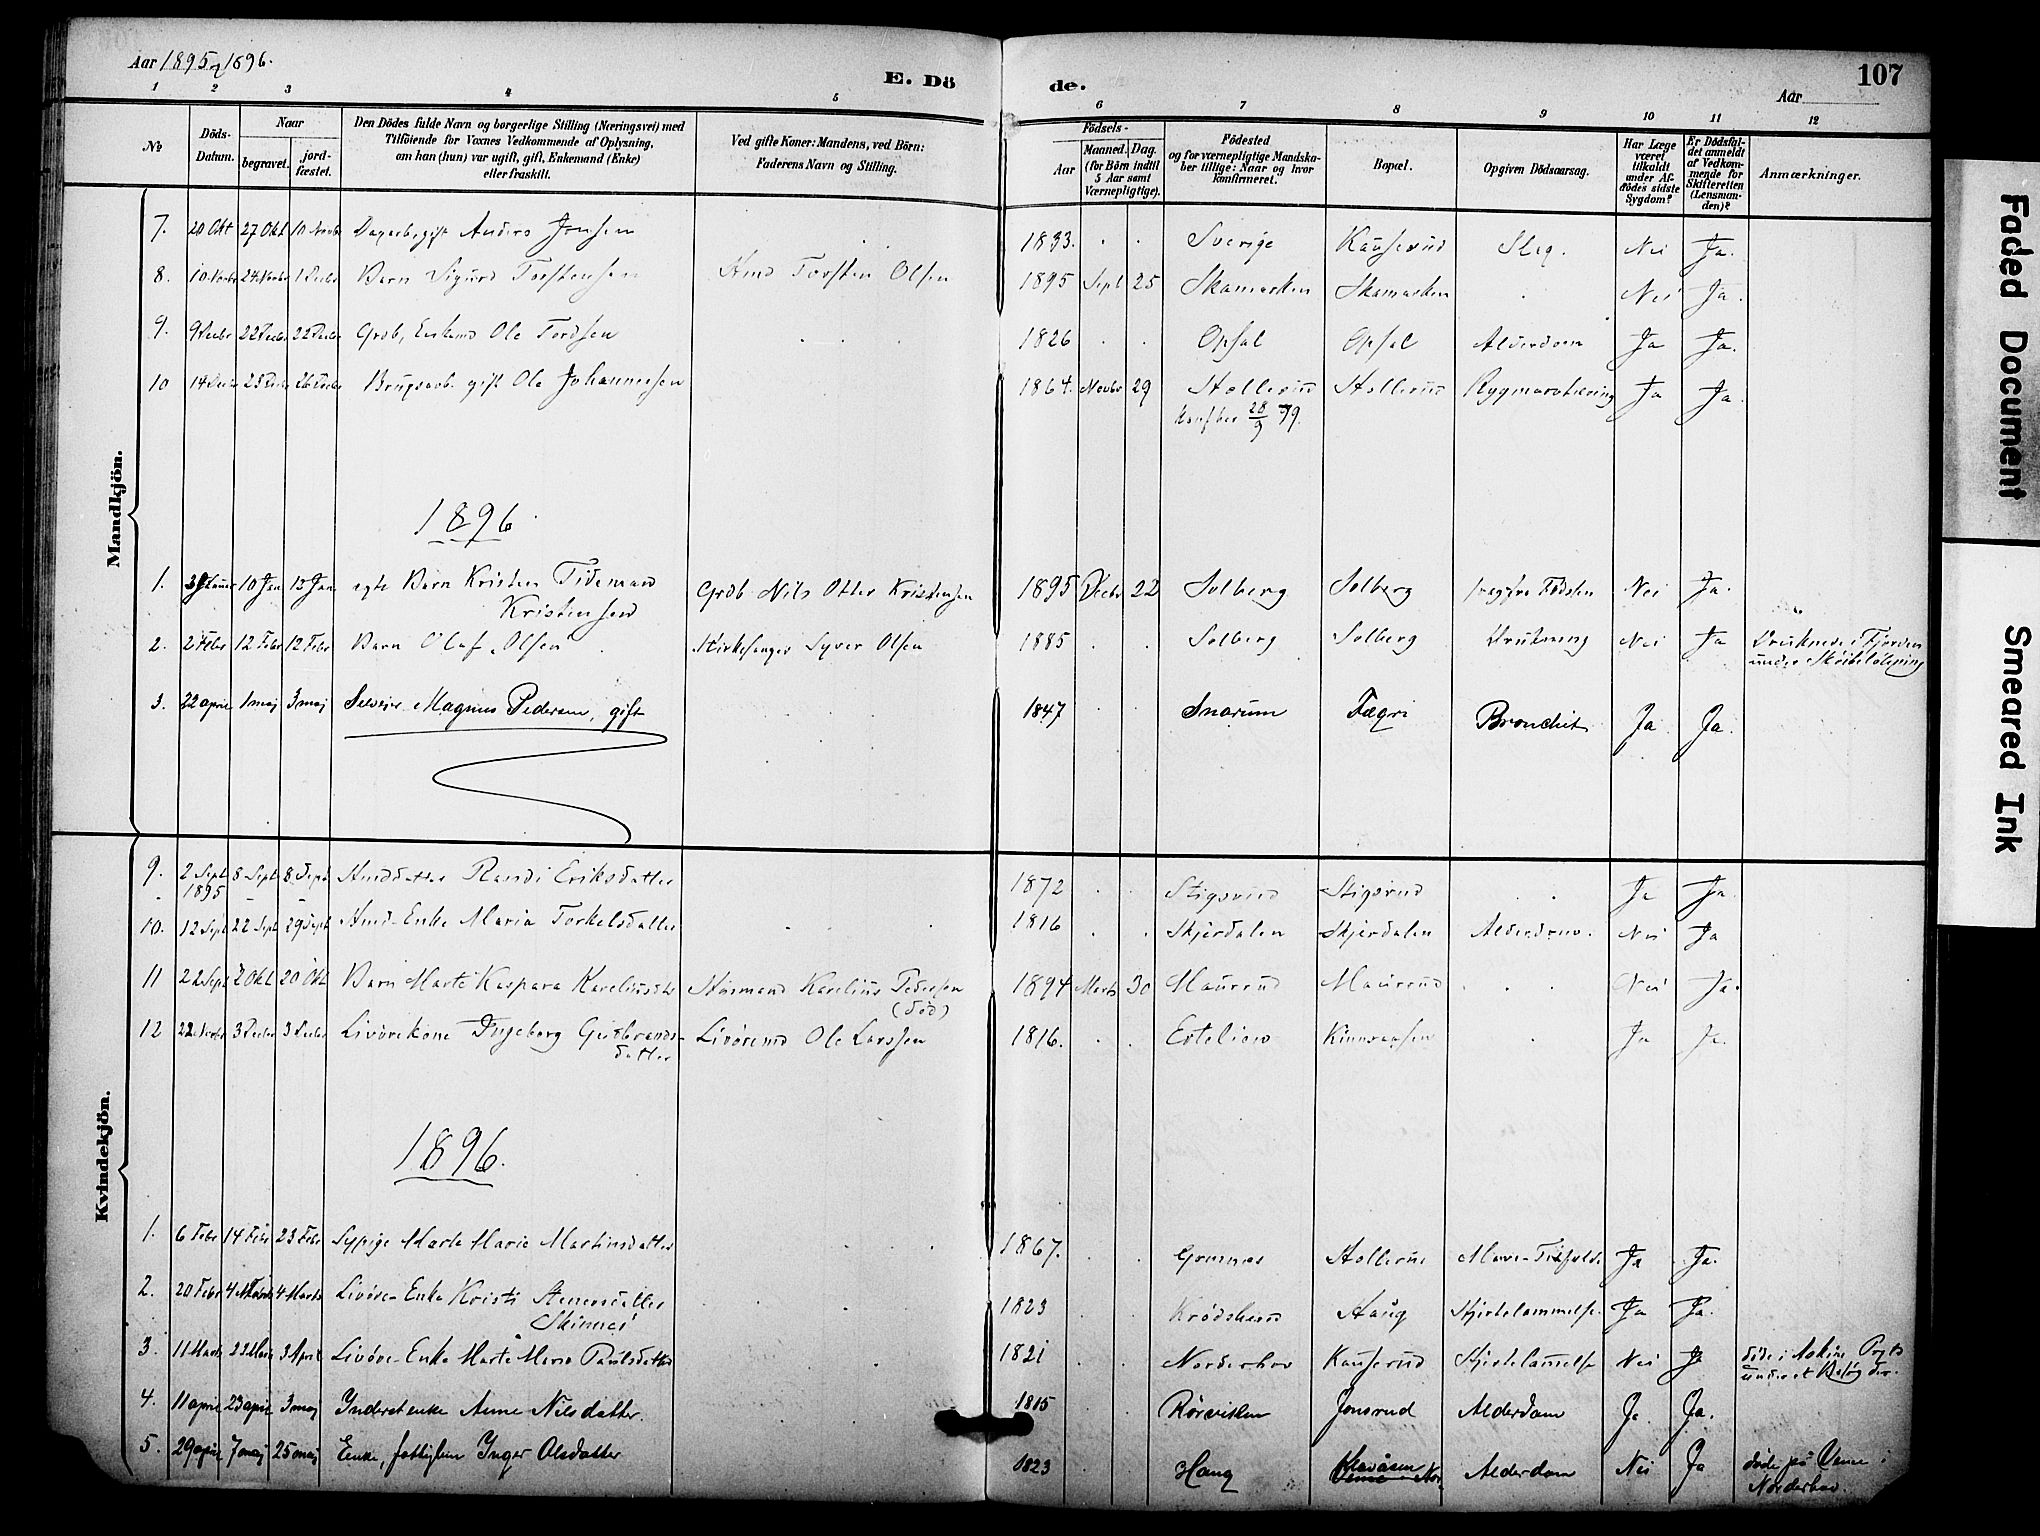 Aar 1895 1896.
E. Dö
de.
107
Aar
1 2 3 4 5 6 7 8 9 10 11 12
No
Döds-
Datum.
Naar
begravet.
jord-
fæstet.
Den Dödes fulde Navn og borgerlige Stilling (Næringsvei) med
Tilföiende for Voxnes Vedkommende af Oplysning,
om han (hun) var ugift, gift, Enkemand (Enke)
eller fraskilt.
Ved gifte Koner: Mandens, ved Börn:
Faderens Navn og Stilling.
Födsels-
Aar
Maaned. Dag.
(for Börn indtil
5 Aar samt
Værnepligtige).
Födested
og for værnepligtige Mandska-
ber tillige: Naar og hvor
konfirmeret.
Bopæl.
Opgiven Dödsaarsag.
Har Læge
været
tilkaldt
under Af-
dödes sidste
Sygdom?
Er Dödsfal-
det anmeldt
af Vedkom-
mende for
Skifteretten
(Lensman-
den)?
Anmærkninger.
Mandkjön.
7. 20 Okt 27 Okt 10 Novbr Dagarb, gift Anders Jensen 1833. Sverige Kauserud Slag. Nei Ja.
8. 10 Novbr 24 Novbr 1 Decbr Barn Sigurd Torstensen Hmd Torsten Olsen 1895 Sept 25 Skamarken Skamarken Nei Ja.
9. 9 Decbr 22 Decbr 22 Decbr Grdb, Enkemd Ole Tordsen 1826 Opsal Opsal Alderdom Ja Ja.
10 14 Decbr 25 Decbr 26 Decbr Brugsarb. gift Ole Johannessen 1864. Novbr 29 Hollerud Hollerud Rygmarvtæring Ja Ja.
28/9 79.
1896.
1. Januar 10 Jan 12 Jan ægte Barn Kristen Tidemand
Kristensen Grdb Nils Otter Kristensen 1895 Decbr 22 Solberg Solberg svag fra Fødslen Nei Ja.
2. 2 Febr 12 Febr 12 Febr Barn Olaf Olsen Kirkesanger Syver Olsen 1885 Solberg Solberg Drukning Nei Ja Druknede i Fjorden
under Skøiteløbning
3. 22 april 1 maj 3 maj Selveier Magnus Pedersen, gift 1847 Snarum Fægri Bronchit Ja Ja.
Kvindekjön.
9. 2 Sept 8 Sept 8 Sept Hmddatter Randi Eriksdatter 1872 Stigsrud Stigsrud Ja Ja.
1895
10. 12 Sept 22 Sept 29 Sept Hmd-Enke Maria Torkelsdatter 1816 Skjerdalen Skjerdalen Alderdom. Nei Ja
11 22 Sept 2 Okt 20 Okt Barn Marte Kaspara Kareliusdtr Husmand Karelius Pedersen
(død) 1894 Marts 30 Maurud Maurud Nei Ja.
12 22 Novbr 3 Decbr 3 Decbr Livørekone Ingeborg Gulbrands-
datter Livøremd Ole Larssen 1816. Ja Ja.
1896.
1. 6 Febr 14 Febr 23 Febr Sypige Marte Marie Martinsdatter 1867. Grønnes Hollerud Mave-Tilfælde Ja Ja.
2. 20 Febr 4 Marts 4 Marts Livøre-Enke Kristi Stenersdatter
Skinnes 1823 Krødsherad Haug Hjertelammelse. Ja Ja.
3. 11 Marts 22 Marts 3 April Livøre-Enke Marte Marie Paulsdatter 1821 Norderhov Kauserud Hjertelammelse Nei Ja døde i Modum
under et Besøg der.
4. 11 april 23 april 3 maj Inderstenke Anne Nilsdatter. 1815 Rørvikten Jonsrud Alderdom Ja Ja.
5. 29 april 7 maj 25 maj Enke, fattiglem Inger Olsdatter 1823 Haug Alderdom Nei Ja døde på Veme i
Norderhov
Faded Document
Smeared Ink